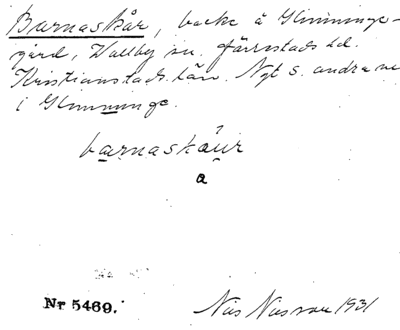 Barnaskår, backe å Glimminge-
gård, Vallby sn. Järrestads hd.
Kristianstads län. Nyt s. andra
i Glimminge.
barnaskåur
a
Nr 5469.
Nils 1931